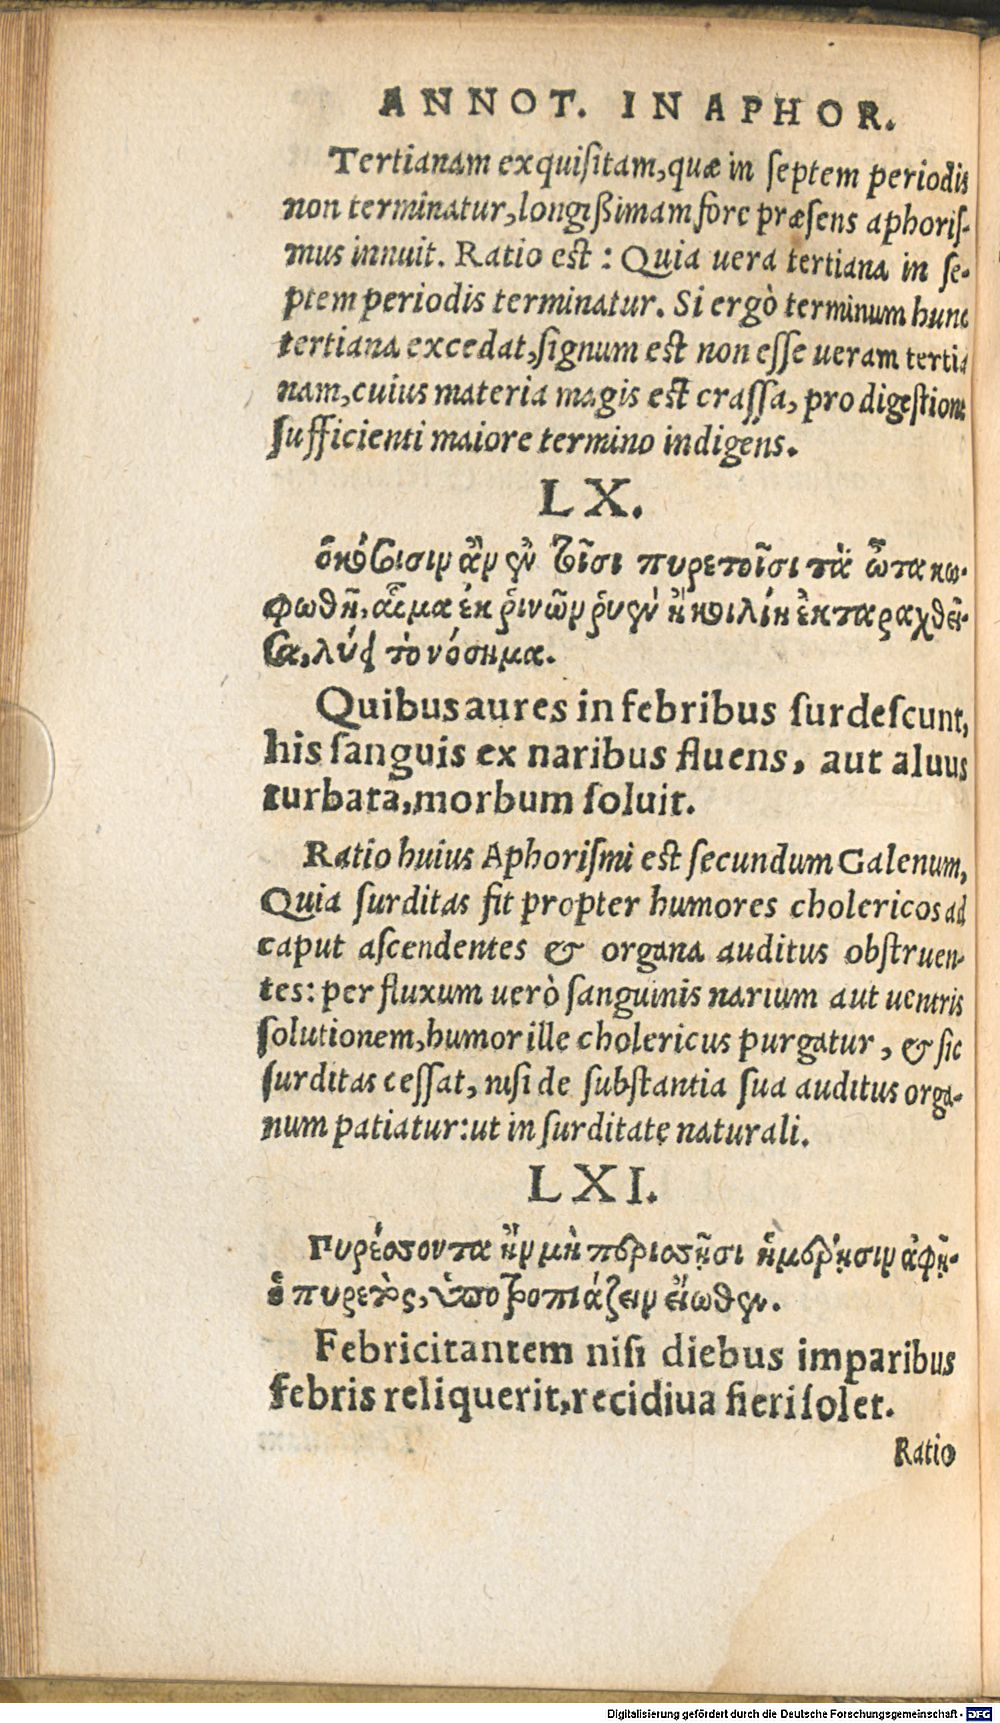 ANNOT. IN APHOR.
Tertianam exquisitam, quæ in septem periodis
non terminatur, longißimam fore præsens aphoris-
mus innuit. Ratio est: Quia uera tertiana in se-
ptem periodis terminatur. Si ergò terminum hunc
tertiana excedat, signum est non esse ueram tertia
nam, cuius materia magis est crassa, pro digestione
sufficienti maiore termino indigens.
LX.
ὁκόσοισιν ἂν ἐν τοῖσι πυρετοῖσι τὰ ὦτα κω-
φωθῇ, αἷμα ἐκ ῥινῶν ῥυὲν ἢ κοιλίη ἐκταραχθεῖ-
σα, λύει τὸ νόσημα.
Quibus aures in febribus surdescunt,
his sanguis ex naribus fluens, aut aluus
turbata, morbum soluit.
Ratio huius Aphorismi est secundum Galenum,
Quia surditas fit propter humores cholericos ad
caput ascendentes & organa auditus obstruen-
tes: per fluxum uerò sanguinis narium aut uentris
solutionem, humor ille cholericus purgatur, & sic
surditas cessat, nisi de substantia sua auditus orga-
num patiatur: ut in surditate naturali.
LXI.
Πυρέσσοντα ἢν μὴ περισσῇσι ἡμέρῃσιν ἀφῇ-
ῃ πυρετὸς, ὑποτροπιάζειν εἴωθεν.
Febricitantem nisi diebus imparibus
febris reliquerit, recidiua fieri solet.
Ratio
Digitalisierung gefördert durch die Deutsche Forschungsgemeinschaft - DFG